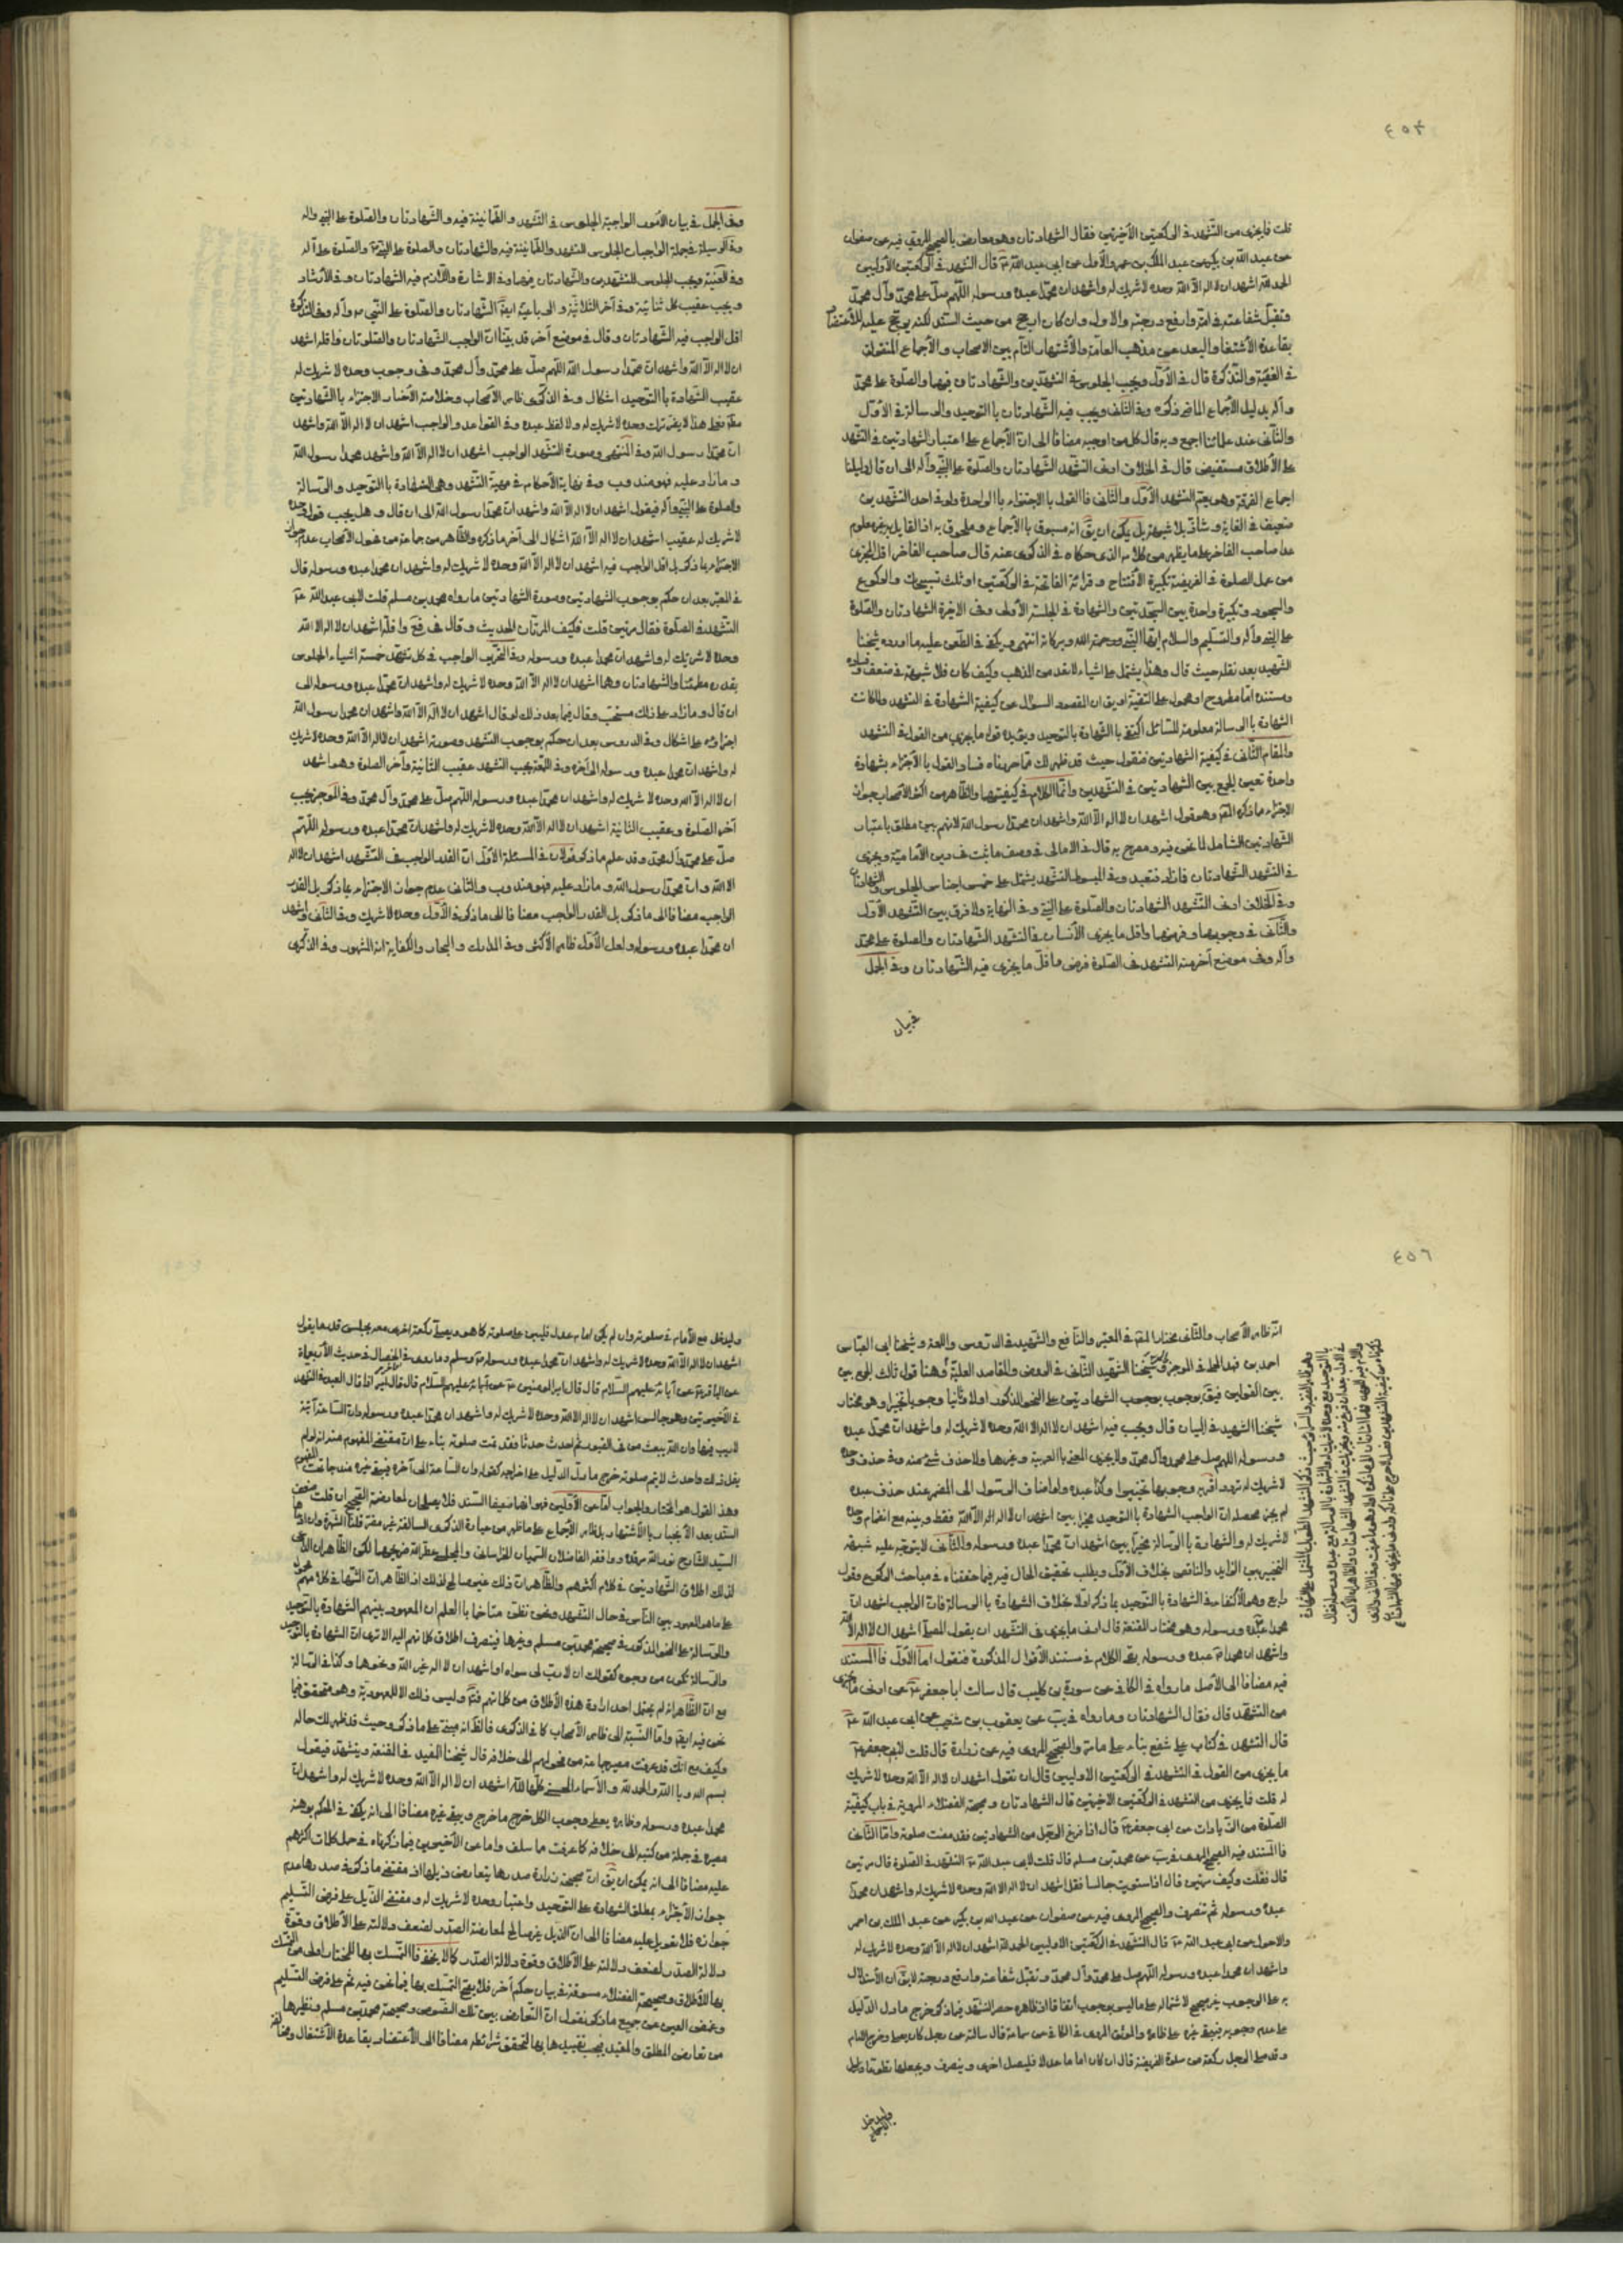 ٤٥٣
قلت فما يجزى من التشهد فى الركعتين الأخيرتين فقال الشهادتان وهو معارض بالصحيح المروى فيه عن صفوان
عن عبد الله بن بكير عن عبد الملك بن عمرو الأحول عن ابى عبد الله ع قال التشهد فى الركعتين الأوليين
الحمد لله اشهد ان لا اله الا الله وحده لا شريك له واشهد ان محمدا عبده ورسوله اللهم صل على محمد وآل محمد
وتقبل شفاعته فى امته وارفع درجته والاول وان كان ارجح من حيث السند لكنه يرجح عليه للاعتضاد
بقاعدة الأشتغال والبعد عن مذهب العامة والأشتهار التام بين الاصحاب والأجماع المنقول
فى الغنية والتذكرة قال فى الأول ويجب الجلوس فى التشهدين والشهادتان فيهما والصلوة على محمد
وآله بدليل الأجماع الماضى ذكره وفى الثانى ويجب فيه الشهادتان بالتوحيد والرسالة فى الأول
والثانى عند علمائنا اجمع وبه قال كل من اوجبه مضافا الى ان الأجماع على اعتبار الشهادتين فى التشهد
على الأطلاق مستفيض قال فى الخلاف ادنى التشهد الشهادتان والصلوة على النبى وآله الى ان قال دليلنا
اجماع الفرقة وهو يعم التشهد الأول والثانى فالقول بالاجتزاء بالواحدة ولو فى احد التشهدين
ضعيف فى الغاية وشاذ بلا شبهة بل يمكن ان يق انه مسبوق بالأجماع وملحوق به اذ القايل به غير معلوم
عدا صاحب الفاخر على ما يظهر من كلامه الذى حكاه فى الذكرى عنه قال صاحب الفاخر اقل المجزى
من عمل الصلوة فى الفريضة تكبيرة الأفتتاح وقرائة الفاتحة فى الركعتين او ثلث تسبيحات والركوع
والسجود وتكبيرة واحدة بين السجدتين والشهادة فى الجلسة الأولى وفى الاخيرة الشهادتان والصلوة
على النبى وآله والتسليم والسلام ايها النبى ورحمة الله وبركاته انتهى ويكفى فى الطعن عليه ما اورده شيخنا
الشهيد بعد نقله حيث قال وهذا يشتمل على اشياء لا تعد من المذهب وكيف كان فلا شبهة فى ضعف قوله
ومستنده اما مطروح او محمول على التقية او يق ان المقصود السؤال عن كيفية الشهادة فى التشهد ولما كانت
الشهادة بالرسالة معلومة للسائل اكتفى بالشهادة بالتوحيد ويؤيده قوله ما يجزى من القول فى التشهد
والمقام الثانى فى كيفية الشهادتين فنقول حيث قد ظهر لك مما حررناه فساد القول بالأجتزاء بشهادة
واحدة تعين الجمع بين الشهادتين فى التشهدين وانما الكلام فى كيفيتها والظاهر من اكثر الأصحاب جواز
الاجتزاء بما ذكره المص وهو قول اشهد ان لا اله الا الله واشهد ان محمدا رسول الله لانهم بين مطلق باعتبار
الشهادتين الشامل لما نحن فيه ومصرح به قال فى الامالى فى وصف ما ثبت فى دين الأمامية ويجزى
فى التشهد الشهادتان فما زاد فتعبد وفى المبسوط التشهد يشتمل على خمس اجناس الجلوس والشهادتان
وفى الخلاف ادنى التشهد الشهادتان والصلوة على النبى وفى النهاية ولا فرق بين التشهد الأول
والثانى فى وجوبهما وفرضهما واقل ما يجزى الأنسان فى التشهد الشهادتان والصلوة على محمد
وآله وفى موضع آخر منه التشهد فى الصلوة فرض واقل ما يجزى فيه الشهادتان وفى الجمل
فى بيان
وفى الجمل فى بيان الأمور الواجبة الجلوس فى التشهد والطمانينة فيه والشهادتان والصلوة على النبى وآله
وفى الوسيلة فى جملة الواجبات الجلوس للتشهد والطمانينة فيه والشهادتان والصلوة على النبى والصلوة على آله
وفى الغنية ويجب الجلوس للتشهدين والشهادتان فيهما وفى الاشارة واللازم فيه الشهادتان وفى الأرشاد
ويجب عقيب كل ثنائية وفى آخر الثلاثية والرباعية ايضا الشهادتان والصلوة على النبى وآله وفى التذكرة
اقل الواجب فيه الشهادتان وقال فى موضع آخر قد بينا ان الواجب الشهادتان والصلوتان واقله اشهد
ان لا اله الا الله واشهد ان محمدا رسول الله اللهم صل على محمد وآل محمد وفى وجوب وحده لا شريك له
عقيب الشهادة بالتوحيد اشكال وفى الذكرى ظاهر الأصحاب وخلاصة الأخبار الاجتزاء بالشهادتين
مطلقا فعلى هذا لا يضر ترك وحده لا شريك له ولا لفظ عبده وفى القواعد والواجب اشهد ان لا اله الا الله واشهد
ان محمدا رسول الله وفى المنتهى وصورة التشهد الواجب اشهد ان لا اله الا الله واشهد محمدا رسول الله
وما زاد عليه فهو مندوب وفى نهاية الأحكام فى التشهد وهى الشهادة بالتوحيد والرسالة
والصلوة على النبى وآله فيقول اشهد ان لا اله الا الله واشهد ان محمدا رسول الله الى ان قال وهل يجب قوله وحده
لا شريك له عقيب اشهد ان لا اله الا الله اشكال الى آخر ما ذكره والظاهر من جماعة من فحول الأصحاب عدم جواز
الاجتزاء بما ذكر بل اقل الواجب فيه اشهد ان لا اله الا الله وحده لا شريك له واشهد ان محمدا عبده ورسوله قال
فى المعتبر بعد ان حكم بوجوب الشهادتين وصورة الشهادتين ما رواه محمد بن مسلم قلت لابى عبد الله ع
التشهد فى الصلوة فقال مرتين قلت فكيف المرتان الحديث وقال فى واقله اشهد ان لا اله الا الله
وحده لا شريك له واشهد ان محمدا عبده ورسوله وفى التحرير الواجب فى كل تشهد خمسة اشياء الجلوس
بقدره مطمئنا والشهادتان وهما اشهد ان لا اله الا الله وحده لا شريك له واشهد ان محمدا عبده ورسوله الى
ان قال وما زاد على ذلك مستحب وقال فيما بعد ذلك لو قال اشهد ان لا اله الا الله واشهد ان محمدا رسول الله
اجزاؤه على اشكال وفى الدروس بعد ان حكم بوجوب التشهد وصورته اشهد ان لا اله الا الله وحده لا شريك
له واشهد ان محمدا عبده ورسوله الى آخره وفى اللمعة يجب التشهد عقيب الثانية وآخر الصلوة وهو اشهد
ان لا اله الا الله وحده لا شريك له واشهد ان محمدا عبده ورسوله اللهم صل على محمد وآل محمد وفى الموجز يجب
آخر الصلوة وعقيب الثانية اشهد ان لا اله الا الله وحده لا شريك له واشهد ان محمدا عبده ورسوله اللهم
صل على محمد وآل محمد وقد علم مما ذكر قولان فى المسئلة الأول ان القدر الواجب فى التشهد اشهد ان لا اله
الا الله وان محمدا رسول الله وما زاد عليه فهو مندوب والثانى عدم جواز الاجتزاء بما ذكر بل القدر
الواجب مضافا الى ما ذكر بل القدر الواجب مضافا الى ما ذكر فى الأول وحده لا شريك وفى الثانى واشهد
ان محمدا عبده ورسوله ولعل الأول ظاهر الأكثر وفى المدارك والبحار والكفاية انه المشهور وفى الذكرى
٤٥٦
انه ظاهر الأصحاب والثانى مختار المص فى المعتبر والنافع والشهيد فى الدروس واللمعة وشيخنا ابى العباس
احمد بن فهد الحلى فى الموجز وشيخنا الشهيد الثانى فى الروض والمقاصد العلية وهنا قول ثالث للجمع بين
بين القولين فيق بوجوب الشهادتين على النحو المذكور اولا وثانيا وجوبا تخييرا وهو مختار
شيخنا الشهيد فى البيان قال ويجب فيه اشهد ان لا اله الا الله وحده لا شريك له واشهد ان محمدا عبده
ورسوله اللهم صل على محمد وآل محمد ولا يجزى المعنى بالعربية وغيرها ولا حذف شئ منه وفى حذف وحده
لا شريك له تردد اقربه وجوبها تخييرا وكذا عبده ولو اضاف الرسول الى المضمر عند حذف عبده
لم يجز محصله ان الواجب الشهادة بالتوحيد مخيرا بين اشهد ان لا اله الا الله فقط وبينه مع انضمام وحده
لا شريك له والشهادة بالرسالة مخيرا بين اشهد ان محمدا عبده ورسوله والثانى لا يتوجه عليه شبهة
التخيير بين الزايد والناقص بخلاف الأول ويطلب تحقيق الحال فيه فيما حققناه فى مباحث الركوع وقول
رابع وهو الأكتفاء فى الشهادة بالتوحيد بما ذكر اولا بخلاف الشهادة بالرسالة فان الواجب اشهد ان
محمدا عبده ورسوله وهو مختار المقنعة قال ادنى ما يجزى فى التشهد ان يقول المصلى اشهد ان لا اله الا الله
واشهد ان محمدا عبده ورسوله بقى الكلام فى مستند الأقوال المذكورة فنقول اما الأول فالمستند
فيه مضافا الى الأصل ما رواه فى الكافى عن سورة بن كليب قال سالت ابا جعفر ع عن ادنى ما يجزى
من التشهد قال فقال الشهادتان وما رواه فى يب عن يعقوب بن شعيب عن ابى عبد الله ع
قال التشهد فى كتاب على شفع بناء على ما مر والصحيح المروى فيه عن زرارة قال قلت لابى جعفر ع
ما يجزى من القول فى التشهد فى الركعتين الاوليين قال ان تقول اشهد ان لا اله الا الله وحده لا شريك
له قلت فما يجزى من التشهد فى الركعتين الاخيرتين قال الشهادتان وصحيحة الفضلاء المروية فى باب كيفية
الصلوة من الزيادات عن ابى جعفر ع قال اذا فرغ الرجل من الشهادتين فقد مضت صلوته واما الثانى
فالمستند فيه الصحيح المروى فى يب عن محمد بن مسلم قال قلت لابى عبد الله ع التشهد فى الصلوة قال مرتين
قال فقلت وكيف مرتين قال اذا استويت جالسا فقل اشهد ان لا اله الا الله وحده لا شريك له واشهد ان محمدا
عبده ورسوله ثم تنصرف والصحيح المروى فيه عن صفوان عن عبد الله بن بكير عن عبد الملك بن عمرو
والاحول عن ابى عبد الله ع قال التشهد فى الركعتين الاوليين الحمد لله اشهد ان لا اله الا الله وحده لا شريك له
واشهد ان محمدا عبده ورسوله اللهم صل على محمد وآل محمد وتقبل شفاعته وارفع درجته لا يق ان الأستدلال
به على الوجوب غير صحيح لاشتماله على ما ليس بوجوب اتفاقا اذ ظاهره حصر التشهد فيما ذكر خرج ما دل الدليل
على عدم وجوبه فيبقى غيره على ظاهره والموثق المروى فى الكافى عن سماعة قال سالته عن رجل كان يصلى وخرج الامام
وقد صلى الرجل ركعة من صلوة الفريضة قال ان كان اماما عدلا فليصل اخرى وينصرف ويجعلهما تطوعا وليدخل
وليدخل
وليدخل مع الأمام فى صلوته وان لم يكن امام عدل فليبن على صلوته كما هو ويصلى ركعة اخرى معه يجلس قدر ما يقول
اشهد ان لا اله الا الله وحده لا شريك له واشهد ان محمدا عبده ورسوله وما روى فى الخصال فى حديث الأربعمائة
عن الباقر ع عن آبائه عليهم السلام قال قال امير المؤمنين ع اذا قال العبد فى التشهد
فى الأخيرتين وهو جالس اشهد ان لا اله الا الله وحده لا شريك له واشهد ان محمدا عبده ورسوله وان الساعة آتية
لا ريب فيها وان الله يبعث من فى القبور ثم احدث حدثا فقد تمت صلوته بناء على ان مقتضى المفهوم منه انه لو لم
يقل ذلك واحدث لا يتم صلوته خرج ما دل الدليل على اخراجه كقوله وان الساعة الى آخره فيبقى غيره مندرجا تحت المفهوم
وهذا القول هو المختار والجواب اما عن الأولين فبانهما ضعيفا السند فلا يصلحان لمعارضة الصحيح ان قلت ضعف
السند بعد الأنجبار بالأشتهار بل ظاهر الأجماع على ما ظهر من عبارة الذكرى السالفة غير مضر قلنا الشهرة وان ادعاها
السيد الشارح نور الله مرقده ووافقه الفاضلان السميان الخراسانى والمجلسى عطر الله ضريحهما لكن الظاهر ان الداعى
لذلك اطلاق الشهادتين فى كلام اكثرهم والظاهر ان ذلك غير صالح لذلك اذ الظاهر ان الشهادة فى كلامهم محمول
على ما هو المعهود بين الناس فى حال التشهد ونحن نطلق متاخرا بالعلم ان المعهود بينهم الشهادة بالتوحيد
والرسالة على النحو المذكور فى صحيحة محمد بن مسلم وغيرها فينصرف اطلاق كلامهم اليه الا ترى ان الشهادة بالتوحيد
والرسالة تكون من وجوه كقولك ان لا رب لى سواه او اشهد ان لا اله غير الله ونحوها وكذا فى الرسالة
مع ان الظاهر انه لم يحتمل احد ارادة هذه الأطلاق من كلماتهم وليس ذلك الا للمعهودية وهو متحقق فيما
نحن فيه ايضا واما النسبة الى ظاهر الأصحاب كما فى الذكرى فالظ انه مبنى على ما ذكر وحيث قد ظهر لك حاله
وكيف مع انك قد عرفت مصيرها عن من فحولهم الى خلافه قال شيخنا المفيد فى المقنعة ويتشهد فيقول
بسم الله وبالله والحمد لله والأسماء الحسنى كلها لله اشهد ان لا اله الا الله وحده لا شريك له واشهد ان
محمدا عبده ورسوله وظاهره يعطى وجوب الكل خرج ما خرج وبقى غيره مضافا الى انه يكفى فى الحكم بوهنه
مصيره فى جملة من كتبه الى خلافه كما عرفت مما سلف واما عن الأخيرين فبما ذكرناه فى حمل كلمات اكثرهم
عليه مضافا الى انه يمكن ان يق ان صحيحة زرارة صدرها يتعارض وذيلها اذ مقتضى ما ذكر فى صدرها عدم
جواز الأجتزاء بمطلق الشهادة على التوحيد واعتبار وحده لا شريك له ومقتضى الذيل على فرض التسليم
جوازه فلا تعويل عليه مضافا الى ان الذيل غير صالح لمعارضة الصدر لضعف دلالته على الأطلاق وقوة
دلالة الصدر لضعف دلالته على الأطلاق وقوة دلالة الصدر كما لا يخفى فالتمسك بها للمختار اولى من التمسك
بها للأطلاق وصحيحة الفضلاء مسوقة فى بيان حكم آخر فلا يصح التمسك بها فيما نحن فيه ثم على فرض التسليم
وغمض العين عن جميع ما ذكر نقول ان التعارض بين تلك النصوص وصحيحة محمد بن مسلم ونظيرها
من تعارض المطلق والمقيد فيجب تقييدها بها لتحقق شرائطه مضافا الى الأعتضاد بقاعدة الأشتغال ومخالفة